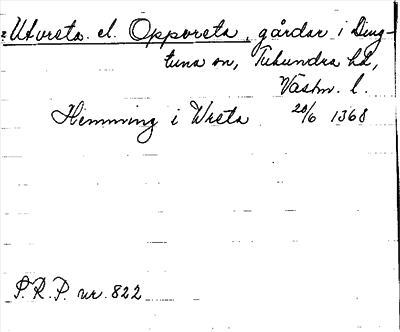 Utvreta el. Oppvreta, gårdar i Ding-
tuna sn, Tuhundra hd,
Västm. l.
Hemming i Wreta 20/6 1368
S.R.P. nr. 822